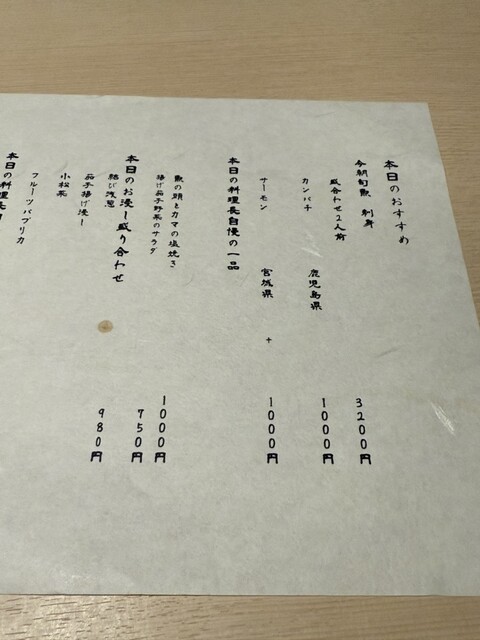 本日のおすすめ
今朝旬魚 刺身
盛合わせ2人前 3200円
カンパチ 鹿児島県 1000円
サーモン 宮城県 1000円
+
本日の料理長自慢の一品
魚の頭とカマの塩焼き 1000円
揚げ茄子野菜のサラダ 750円
本日のお浸し盛り合わせ
結び浅葱 980円
茄子揚げ浸し
小松菜
フルーツパプリカ
本日の料理長自